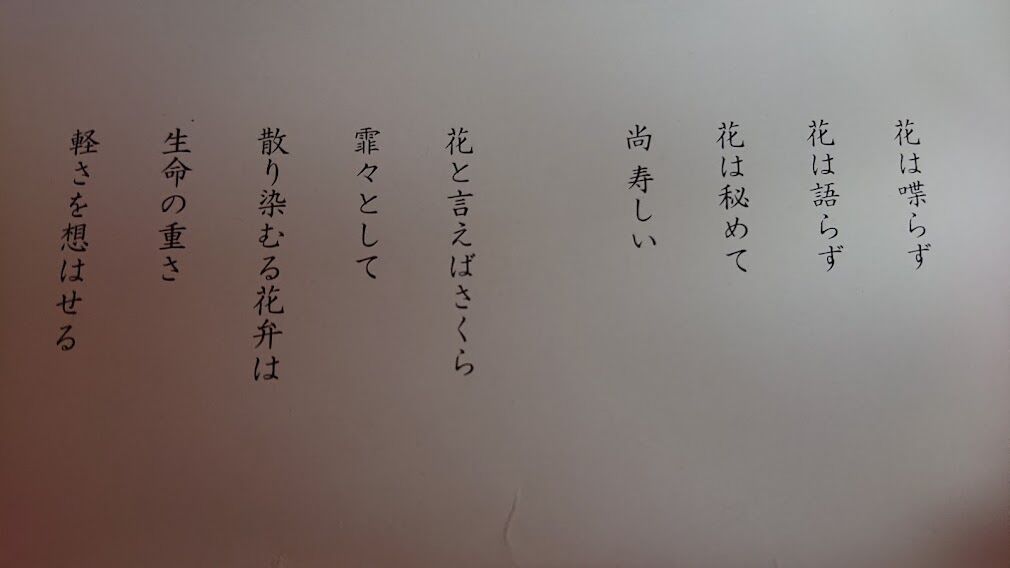 花は喋らず
花は語らず
花は秘めて
尚 寿しい
花と言えばさくら
霏々として
散り染むる花弁は
生命の重さ
軽さを想はせる